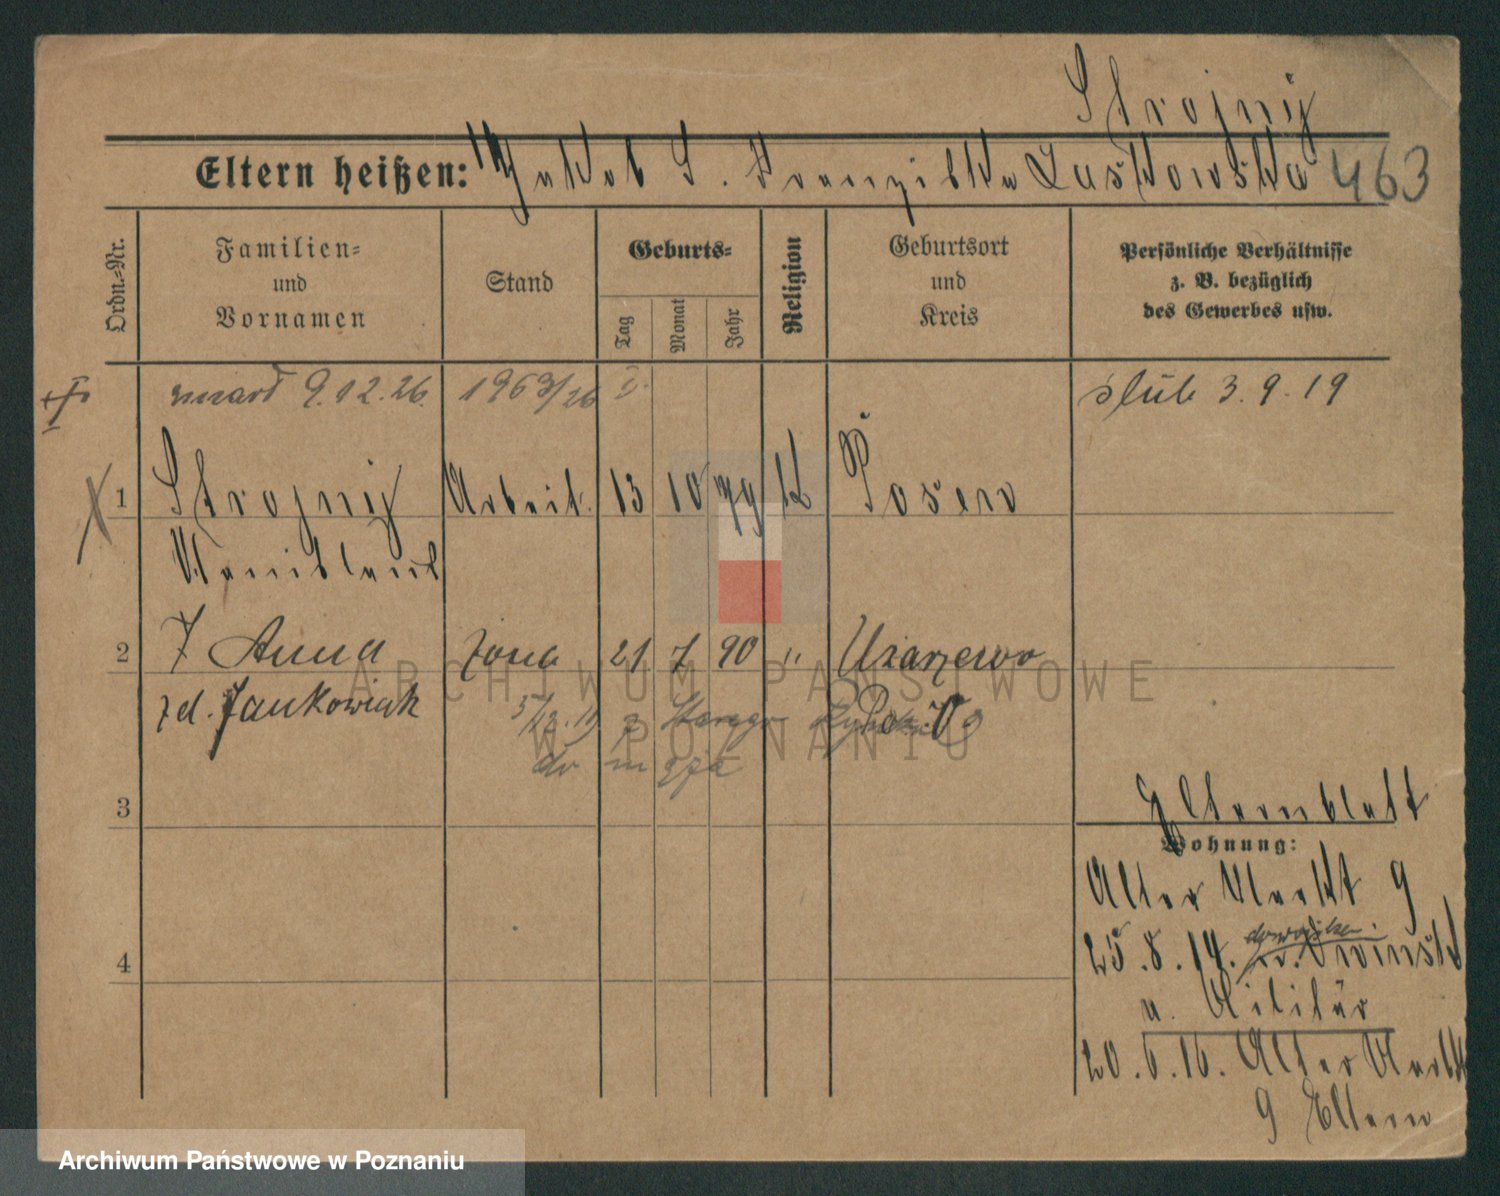 Strojny
Eltern heißen: Jakob S. Franziska Laskowska 463
Ordn.-Nr.
Familien-
und
Vornamen
Stand
Geburts-
Tag
Monat
Jahr
Religion
Geburtsort
und
Kreis
Persönliche Verhältnisse
z. B. bezüglich
des Gewerbes usw.
zmarł 9.12.26. 1963/26
ślub 3.9.19
1 Strojny Arbeit. 13 10 99 k Posen
Stanislaus
2 Anna żona 21 7 90 " Uzarzewo
zd. Jankowiak
3
Elternblatt
Wohnung:
Alter Markt 9
4
25.8.14.
u. Militär
20.6.16. Alter Markt
9 Eltern
ARCHIWUM PAŃSTWOWE
W POZNANIU
Archiwum Państwowe w Poznaniu